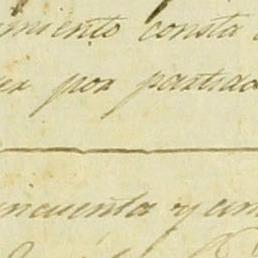 miento consta
por partida
incuenta y cin